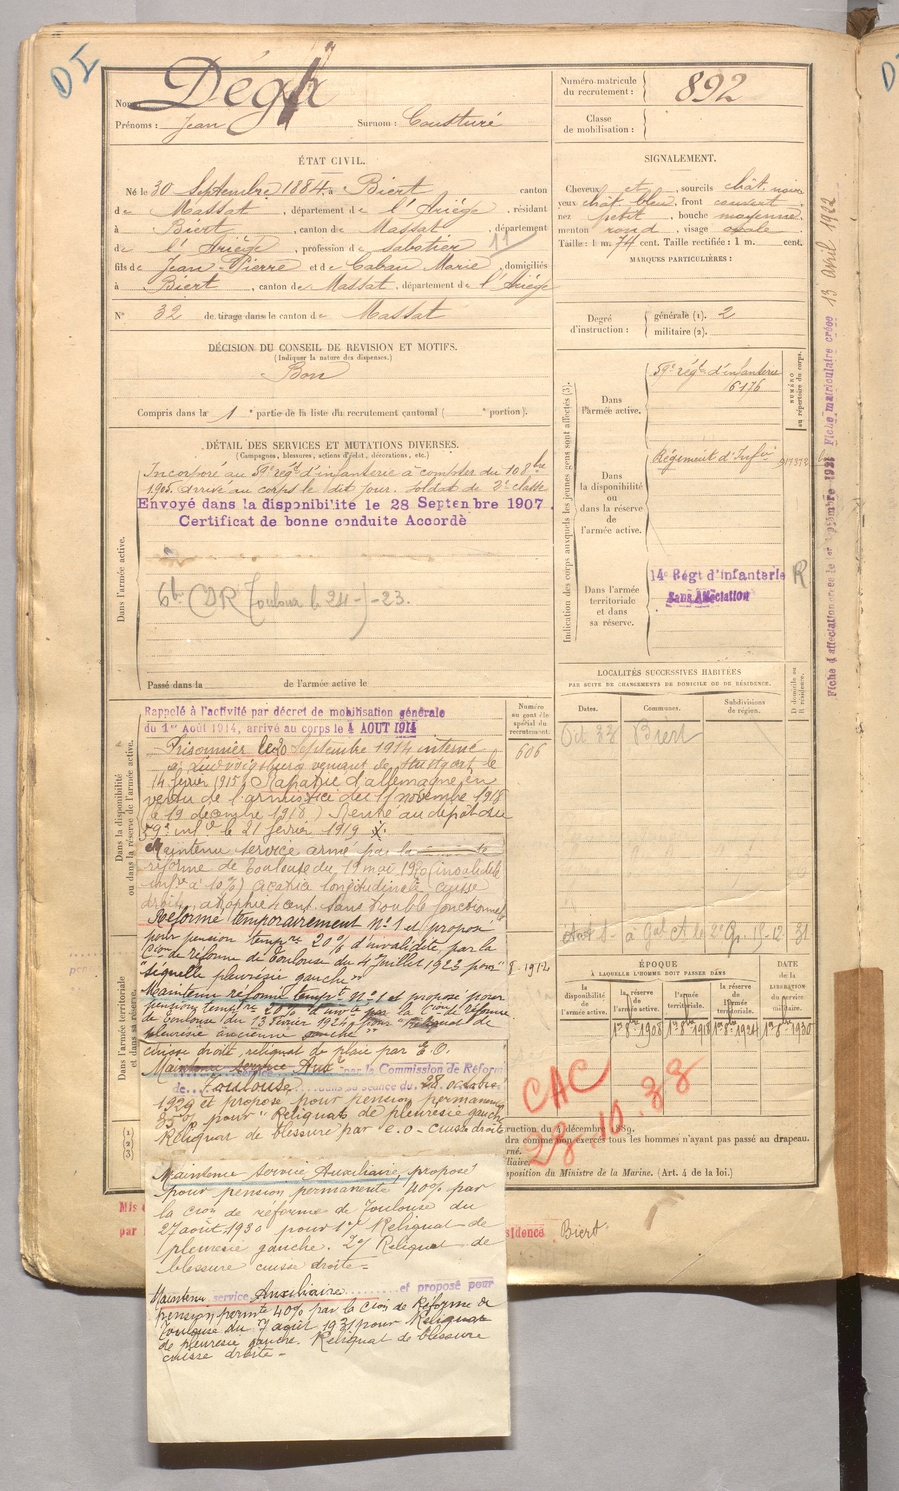 DI
Nom: Dégh
Prénoms : Jean Surnom : Cousturé
Numéro matricule du recrutement : 892
Classe de mobilisation :
ÉTAT CIVIL.
Né le 30 Septembre 1884, à Biert canton
de Massat, département de l'Ariège, résidant
à Biert, canton de Massat, département
de l'Ariège, profession de sabotier 11
fils de Jean-Pierre et de Caban Marie, domiciliés
à Biert, canton de Massat, département de l'Ariège
N° 32 de tirage dans le canton de Massat
SIGNALEMENT.
Cheveux et sourcils chât. noirs
yeux chât. bleu, front couvert
nez petit, bouche moyenne,
menton rond, visage ovale
Taille : 1 m. 74 cent. Taille rectifiée : 1 m. cent.
MARQUES PARTICULIÈRES :
Degré d'instruction : générale (1). 2
militaire (2).
DÉCISION DU CONSEIL DE REVISION ET MOTIFS.
(Indiquer la nature des dispenses.)
Bon
Compris dans la 1e partie de la liste du recrutement cantonal ( e portion).
DÉTAIL DES SERVICES ET MUTATIONS DIVERSES.
(Campagnes, blessures, actions d'éclat, décorations, etc.)
Dans l'armée active.
Incorporé au 59e régt d'infanterie à compter du 10 8bre
1905. Arrivé au corps le dit jour. Soldat de 2e classe
Envoyé dans la disponibilité le 28 Septenbre 1907.
Certificat de bonne conduite Accordé
CDR Toulouse le 24-1-23.
Passé dans la de l'armée active le
Indication des corps auxquels les jeunes gens sont affectés (3).
Dans l'armée active.
59e régt d'infanterie
6176
NUMÉRO au répertoire du corps.
Dans la disponibilité ou dans la réserve de l'armée active.
Régiment d'Infie
Dans l'armée territoriale et dans sa réserve.
14e Régt d'infanterie R
Sans Affectation
Fiche matriculaire créée 13 Avril 1922
LOCALITÉS SUCCESSIVES HABITÉES
PAR SUITE DE CHANGEMENTS DE DOMICILE OU DE RÉSIDENCE.
Dates. Communes. Subdivisions de région. D domicile ou R résidence.
Oct 33 Biert
Dans la disponibilité ou dans la réserve de l'armée active.
Numéro au contrôle spécial du recrutement.
606
Rappelé à l'activité par décret de mobilisation générale
du 1er Août 1914, arrivé au corps le 4 AOUT 1914
Prisonnier le 20 Septembre 1914 interné
à Ludwigsburg venant de Stuttgart le
14 février 1915. Rapatrié d'allemagne en
vertu de l'armistice du 11 novembre 1918
(le 19 décembre 1918.) Rentré au dépôt du
59e infie le 21 février 1919
Maintenu service armé par la
réforme de Toulouse du 19 mai 1920 (invalidité
infre à 10%) cicatrice longitudinale cuisse
droite, atrophie 4 cent. sans trouble fonctionnel
Réformé temporairement n°1 et proposé
pour pension tempre 20% d'invalidité, par la
Cion de réforme de Toulouse du 4 Juillet 1923 pour
"séquelle pleurésie gauche"
Dans l'armée territoriale et dans sa réserve.
Maintenu réformé tempt n°1 et proposé pour
pension tempre 20% d'invté par la Cion de réforme
de Toulouse du 13 Février 1924 pour "Reliquat de
pleurésie ancienne gauche"
cuisse droite, reliquat de plaie par E.O.
Maintenu service Auxre par la Commission de Réforme
de Toulouse dans sa séance du 28 octobre
1929 et proposé pour pension permanente
35% pour "Reliquats de pleurésie gauche
Reliquat de blessure par e.o - cuisse droite
ÉPOQUE
À LAQUELLE L'HOMME DOIT PASSER DANS
DATE de la LIBÉRATION du service militaire.
la disponibilité de l'armée active. la réserve de l'armée active. l'armée territoriale. la réserve de l'armée territoriale.
1er 8bre 1908 1er 8bre 1918 1er 8bre 1924 1er 8bre 1930
CAC
28.10.38
dra comme non exercés tous les hommes n'ayant pas passé au drapeau.
position du Ministre de la Marine. (Art. 4 de la loi.)
Maintenu Service Auxiliaire, proposé
pour pension permanente 40% par
la Cion de réforme de Toulouse du
27 août 1930 pour 1°/ Reliquat de
pleurésie gauche. 2°/ Reliquat de
blessure cuisse droite=
sidence Biert.
Maintenu service Auxiliaire et proposé pour
pension permte 40% par la Cion de Réforme de
Toulouse du 7 août 1931 pour Reliquat
de pleurésie gauche. Reliquat de blessure
cuisse droite -